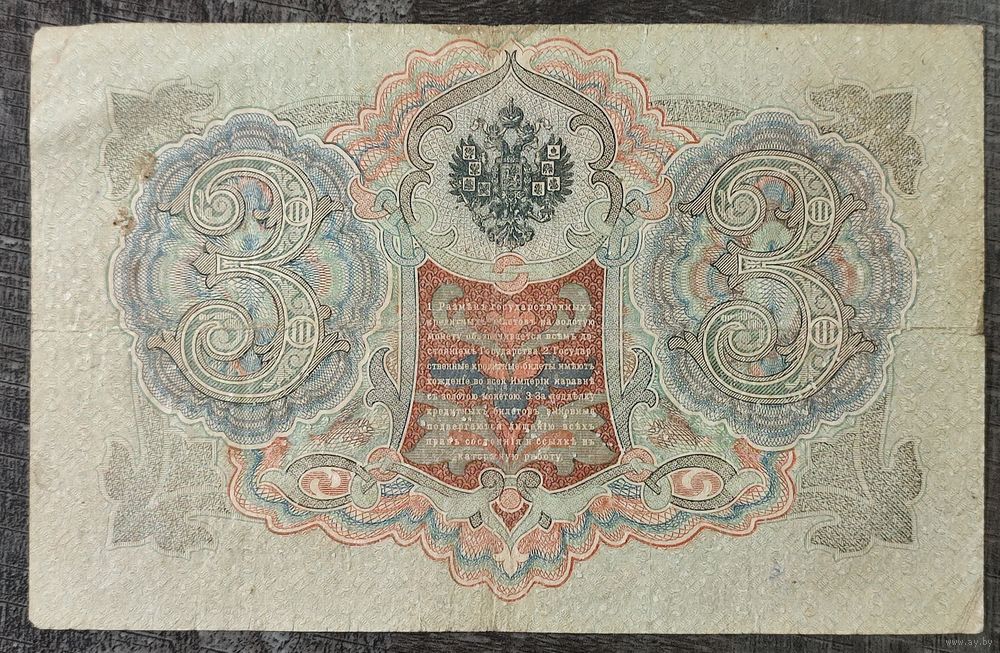 3
3
1. Размѣнъ государственныхъ
кредитныхъ билетовъ на золотую
монету обезпечивается всѣмъ до
стояніемъ Государства. 2. Государ
ственные кредитные билеты имѣютъ
хожденіе во всей Имперіи наравнѣ
съ золотою монетою. 3. За поддѣлку
кредитныхъ билетовъ виновные
подвергаются лишенію всѣхъ
правъ состоянія и ссылкѣ въ
каторжную работу.
www.ay.by